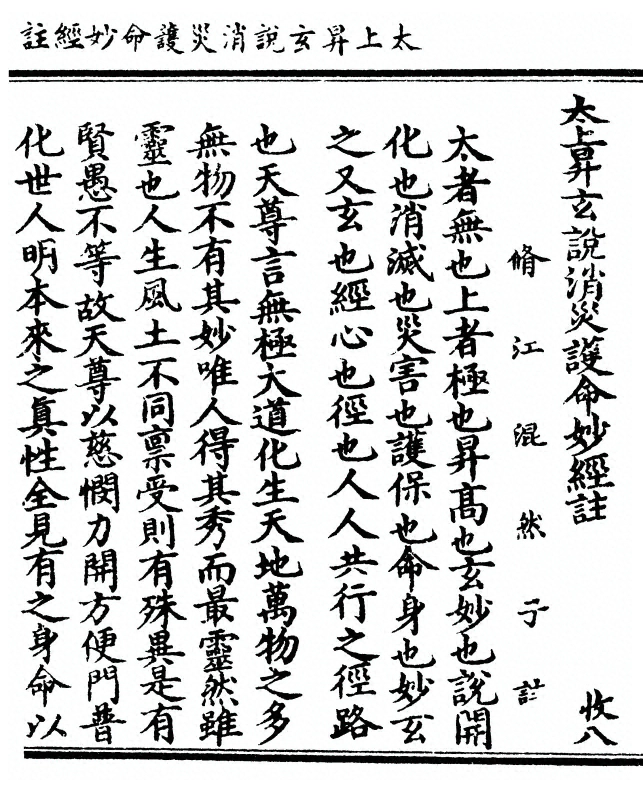 太上昇玄說消災護命妙經註
太上昇玄說消災護命妙經註
收八
脩江混然子註
太者無也上者極也昇高也玄妙也說開
化也消滅也災害也護保也命身也妙玄
之又玄也經心也徑也人人共行之徑路
也天尊言無極大道化生天地萬物之多
無物不有其妙唯人得其秀而最靈然雖
靈也人生風土不同禀受則有殊異是有
賢愚不等故天尊以慈憫力開方便門普
化世人明本來之真性全見有之身命以